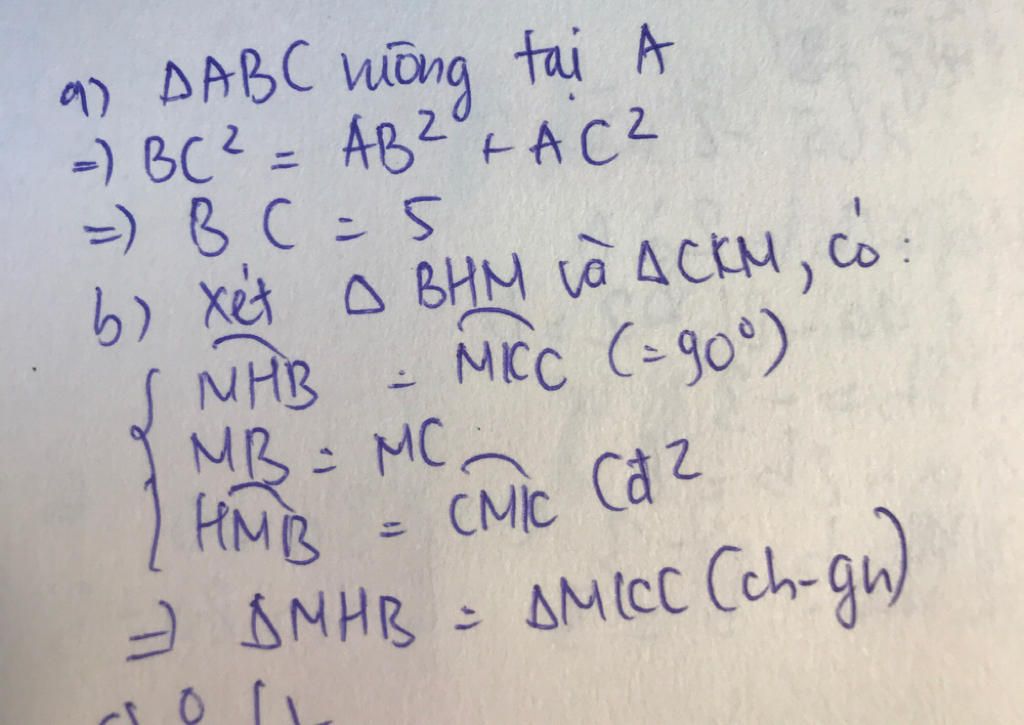 a) ΔABC vuông tại A
=) BC² = AB² + AC²
=) BC = 5
b) Xét Δ BHM và ΔCKM, có:
MHB = MKC (=90°)
MB = MC
HMB = CMK (đ²
=) ΔMHB = ΔMKC (ch-gn)